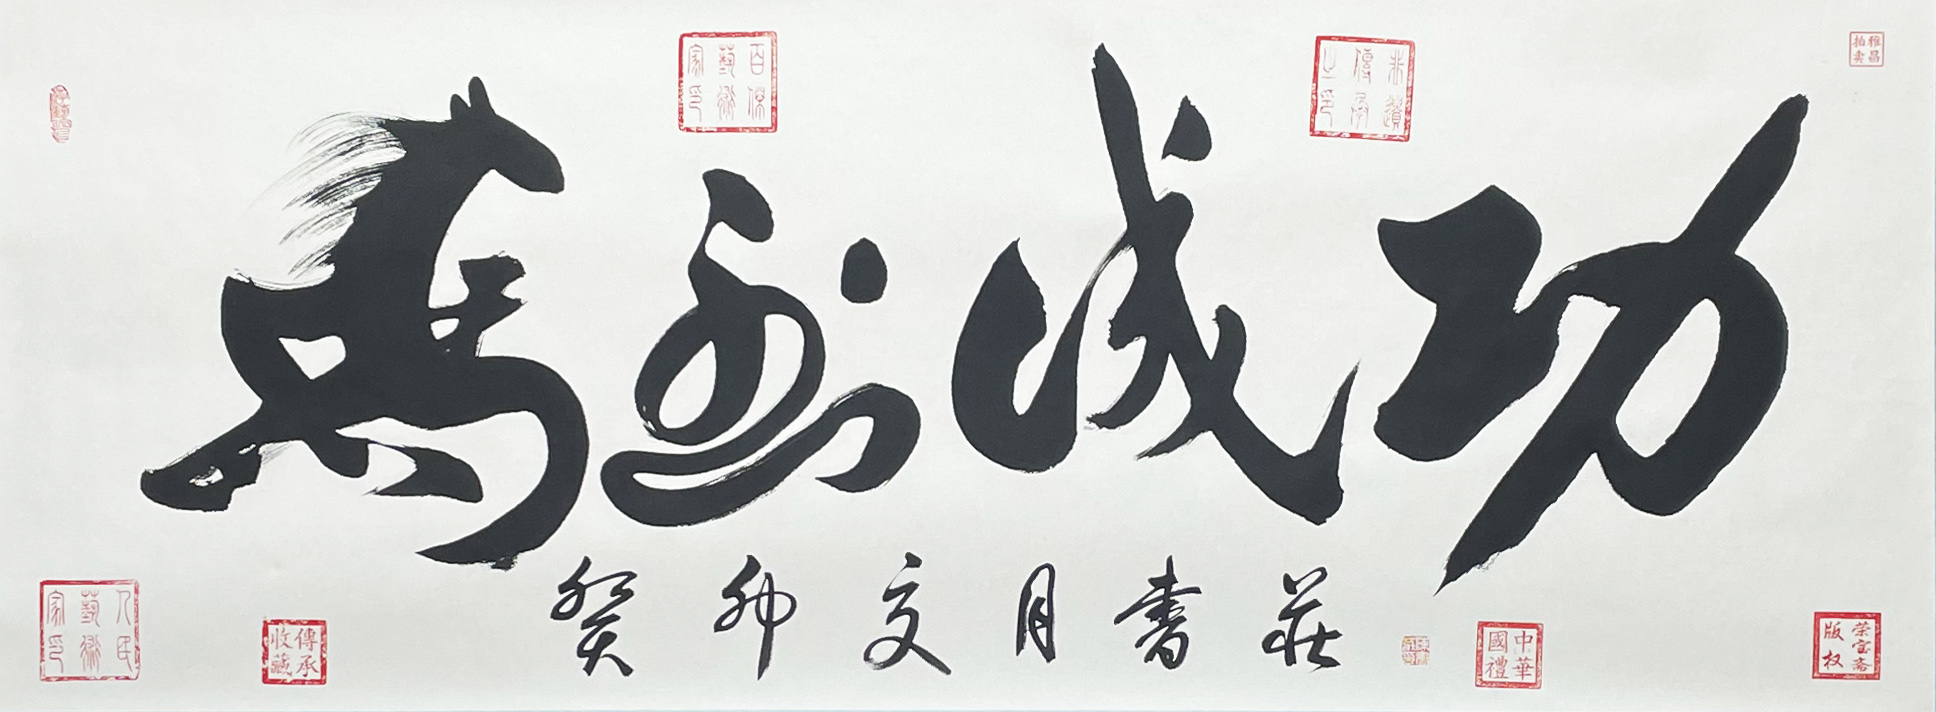 馬到成功
癸卯夏月書莊
藝術家印
非遺傳承之印
雅昌拍卖
人民藝術家印
傳承收藏
中華國禮
荣宝斋版权